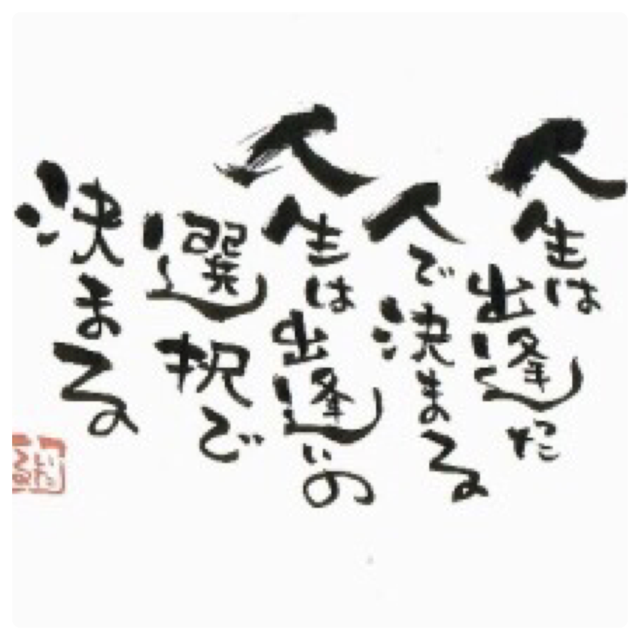 人生は
出逢った
人で決まる
人生は
出逢いの
選択で
決まる